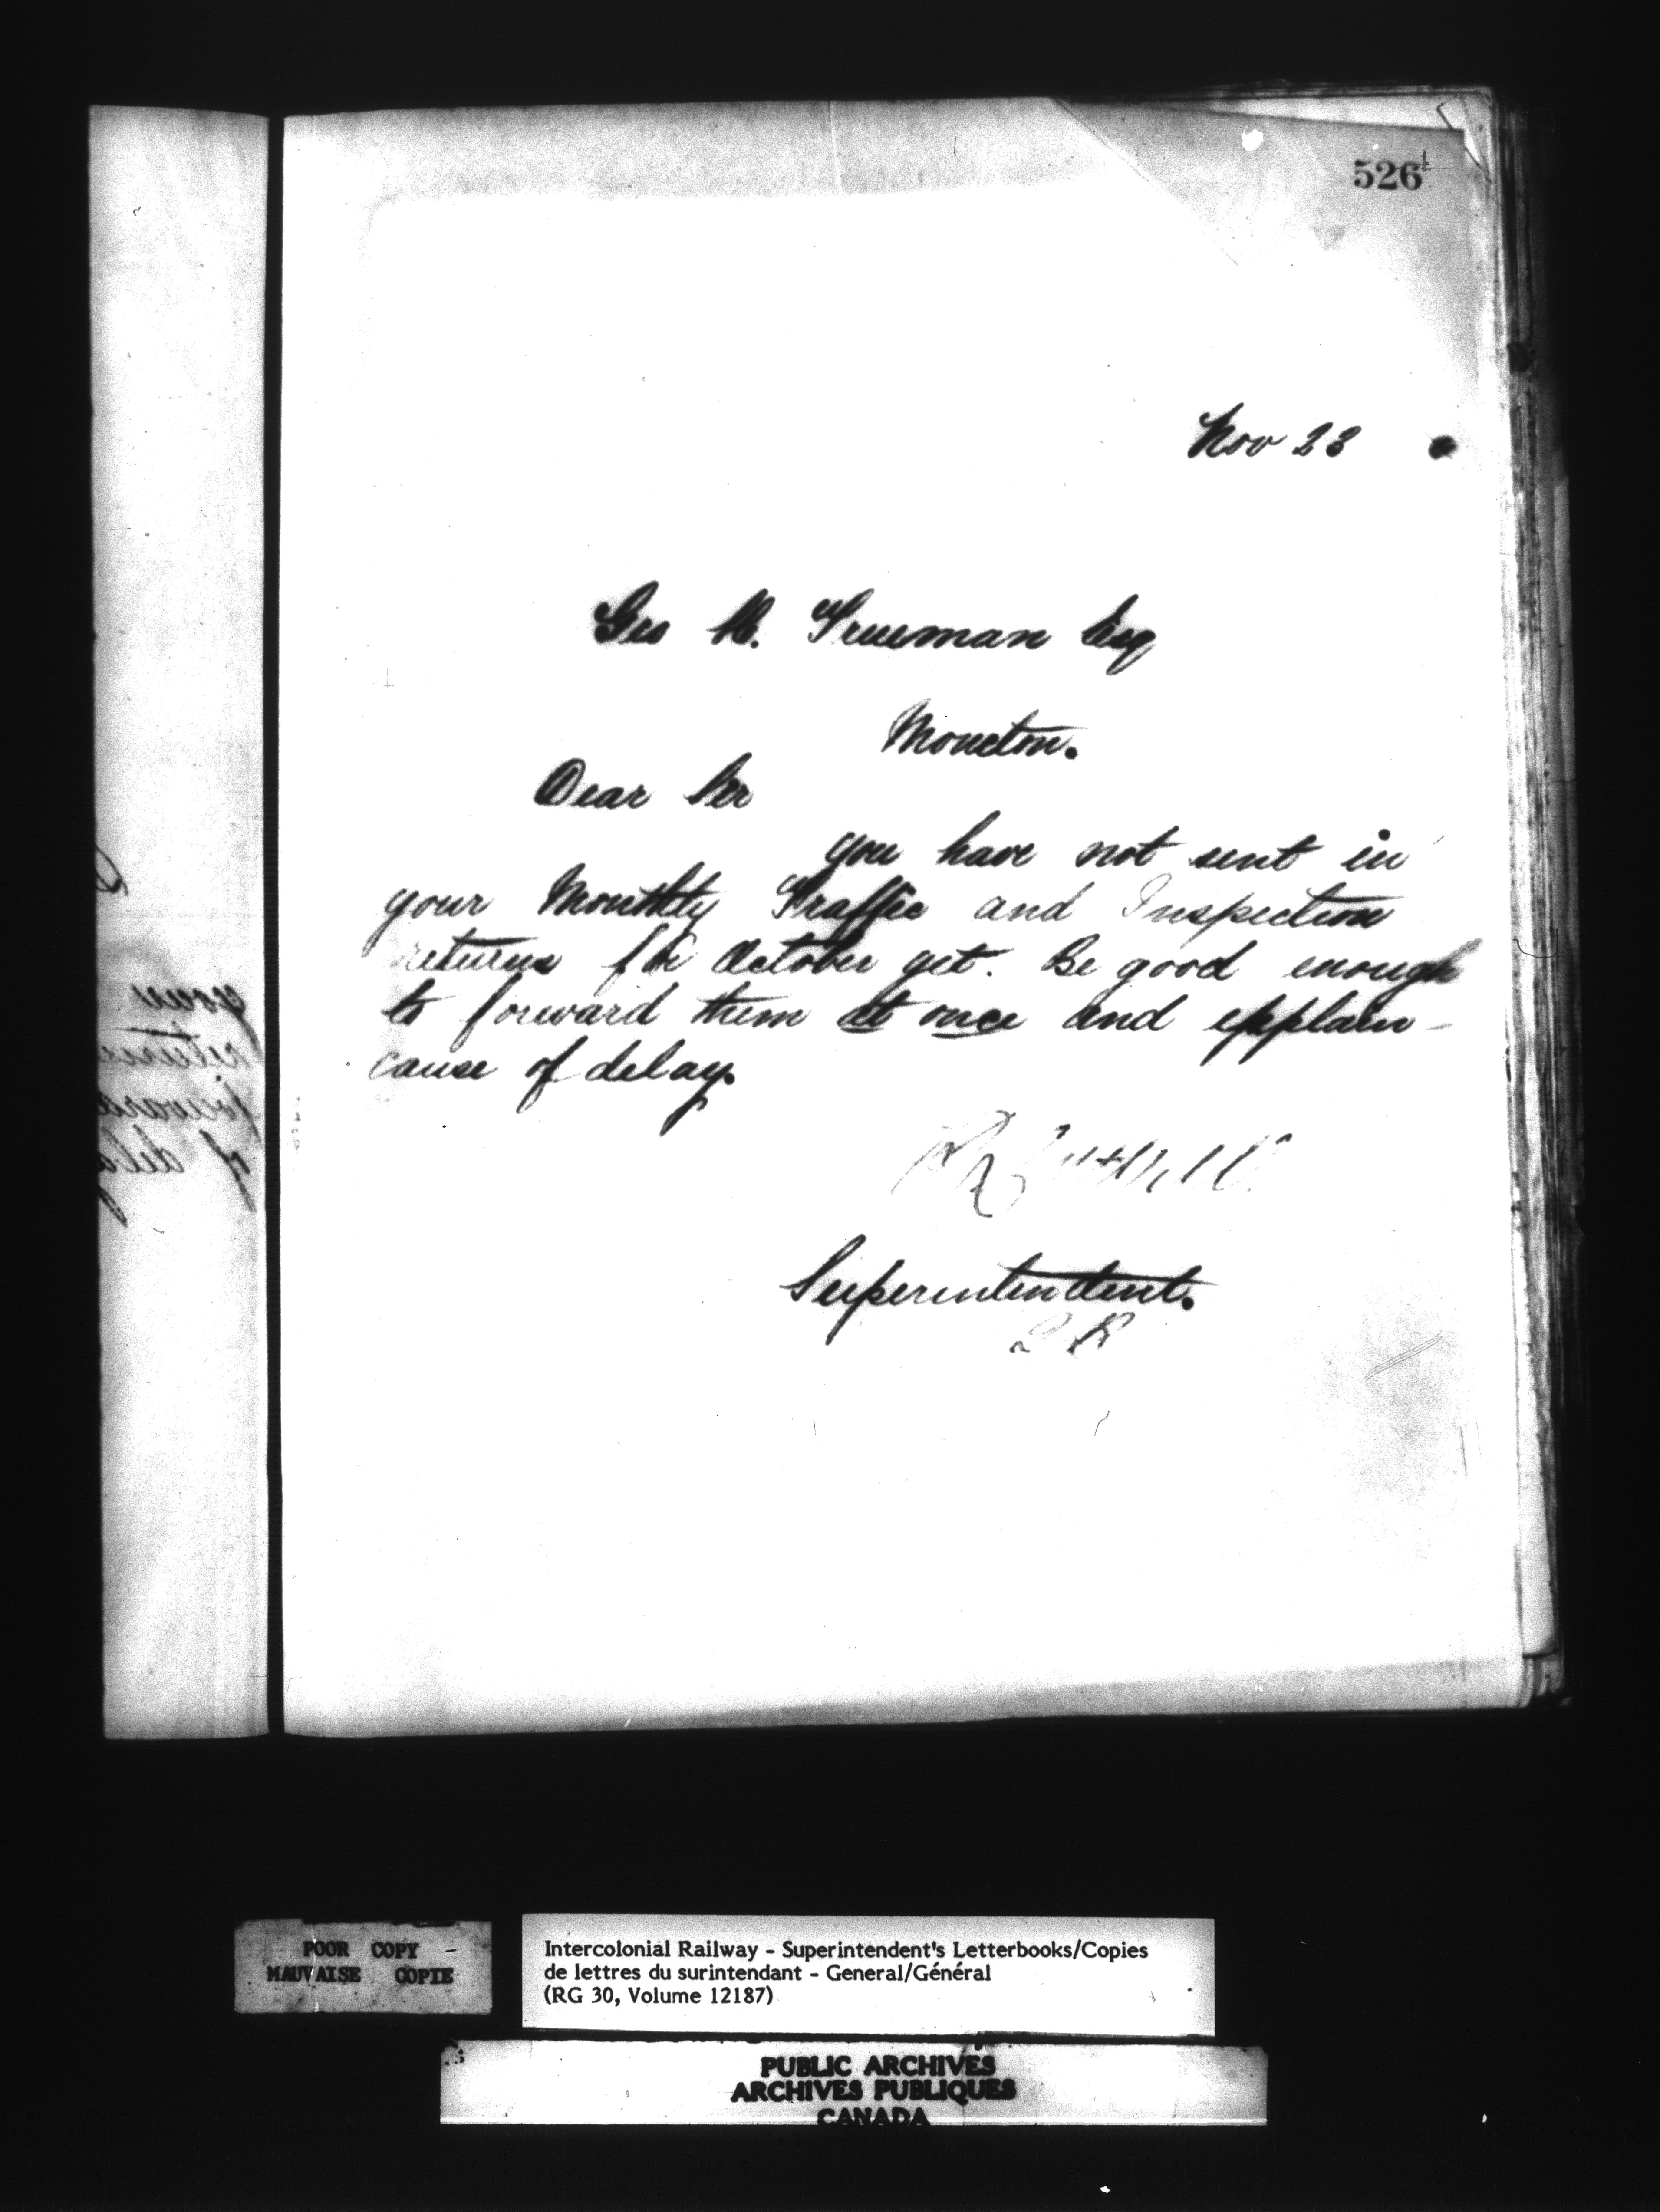 526
Nov 23
Geo M. Trueman Esq
Moncton.
Dear Sir
you have not sent in
your Monthly Traffic and Inspection
returns for October yet. Be good enough
to forward them at once and explain
cause of delay.
Superintendent.
your
returns
forward
of delay
POOR COPY
MAUVAISE COPIE
Intercolonial Railway - Superintendent's Letterbooks/Copies
de lettres du surintendant - General/Général
(RG 30, Volume 12187)
PUBLIC ARCHIVES
ARCHIVES PUBLIQUES
CANADA